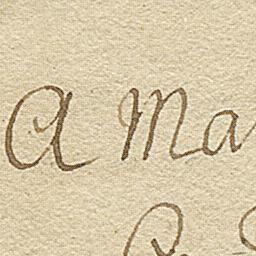 A Ma